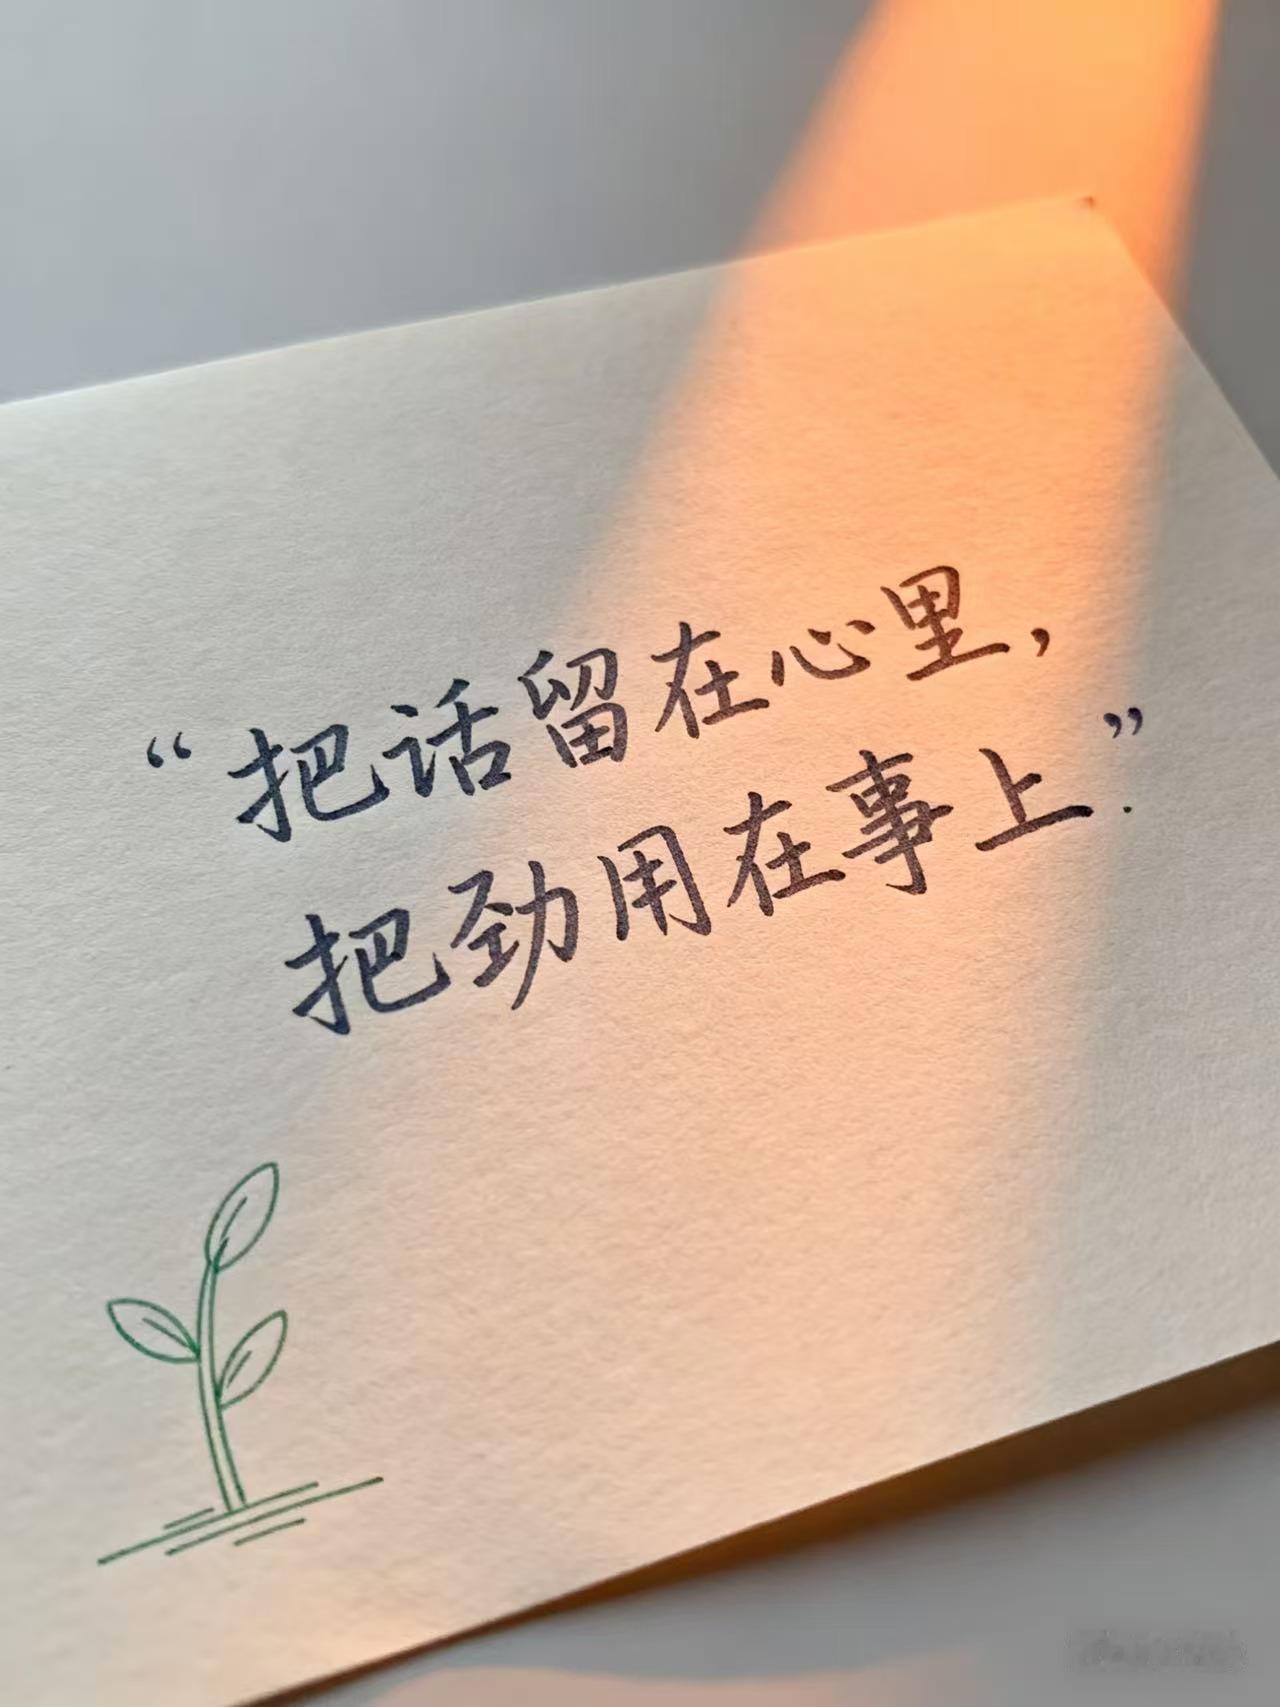 “把话留在心里,
把劲用在事上.”